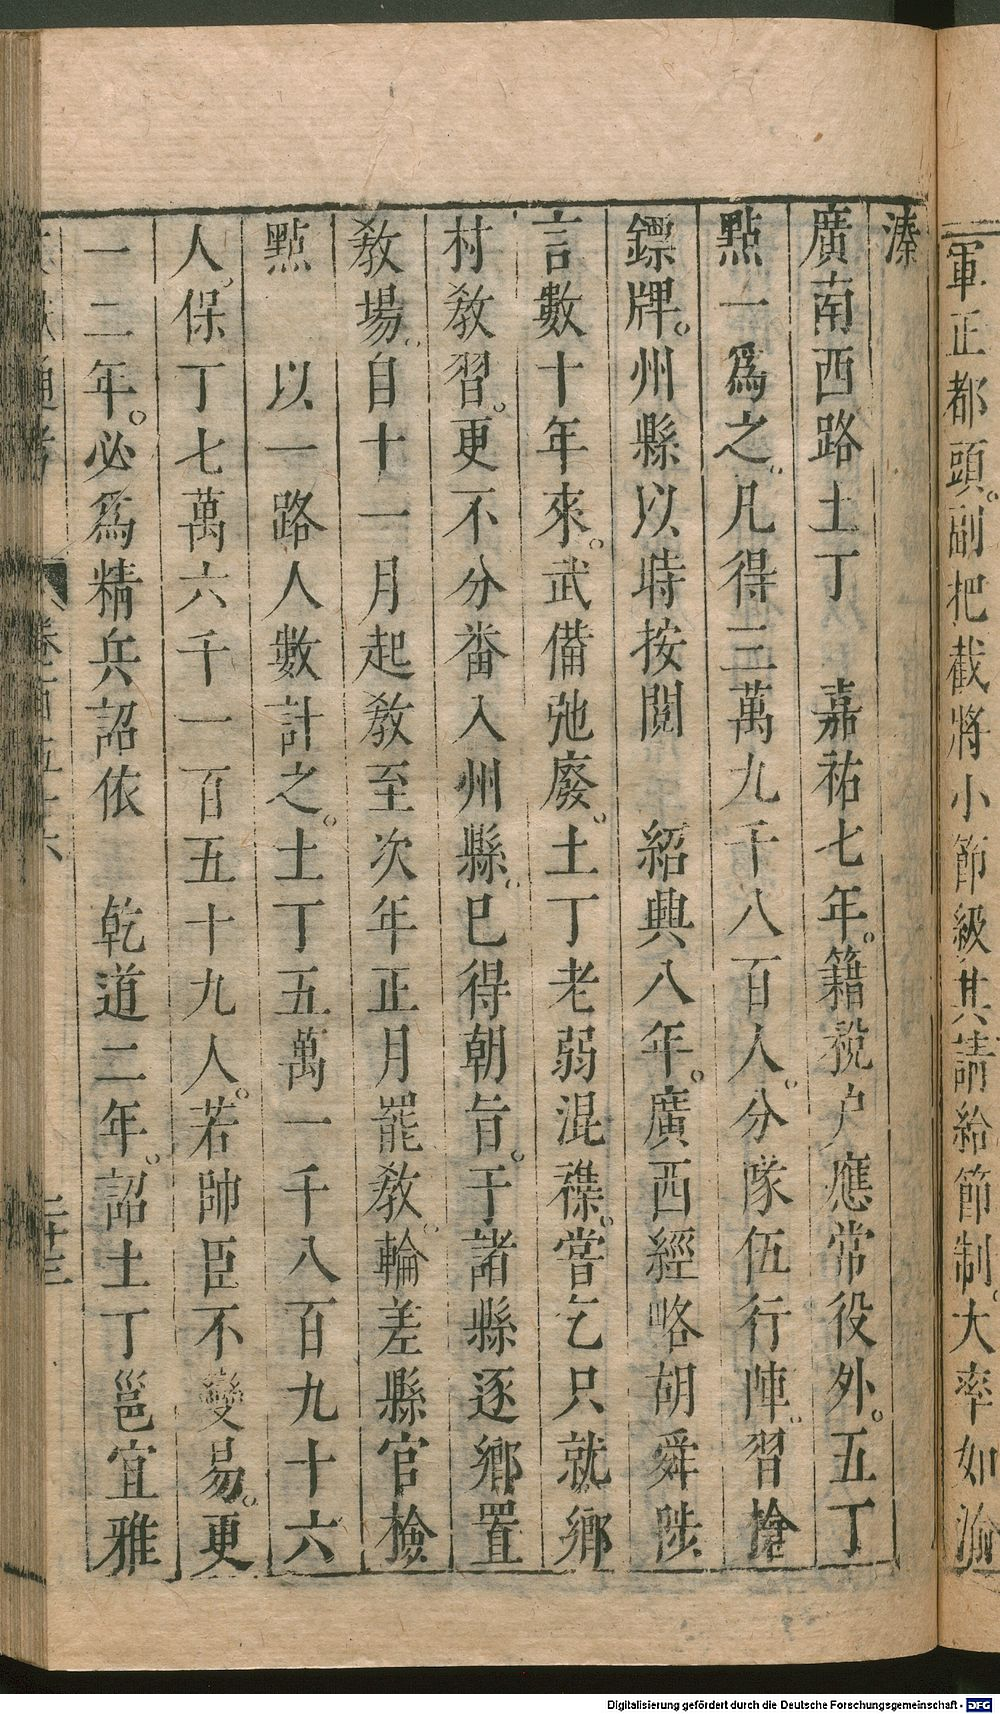 軍正都頭。副把截將小節級其請給節制。大率如渝
溱
廣南西路土丁　嘉祐七年。籍稅户應常役外。五丁
點一爲之。凡得三萬九千八百人。分隊伍行陣。習搶
鏢牌。州縣以時按閱　紹興八年。廣西經略胡舜陟
言數十年來。武備弛廢。土丁老弱混襍。嘗乞只就鄉
村教習。更不分畨入州縣。巳得朝旨。于諸縣逐鄉置
教場。自十一月起教至次年正月罷教。輪差縣官檢
點　以一路人數計之。土丁五萬一千八百九十六
人。保丁七萬六千一百五十九人。若帥臣不變易。更
一二年。必爲精兵詔依　乾道二年。詔土丁邕宜雅
通考　卷百五十六　二十三
Digitalisierung gefördert durch die Deutsche Forschungsgemeinschaft - DFG